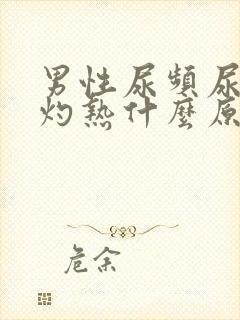 男性尿頻尿
灼熱什麼原
危余